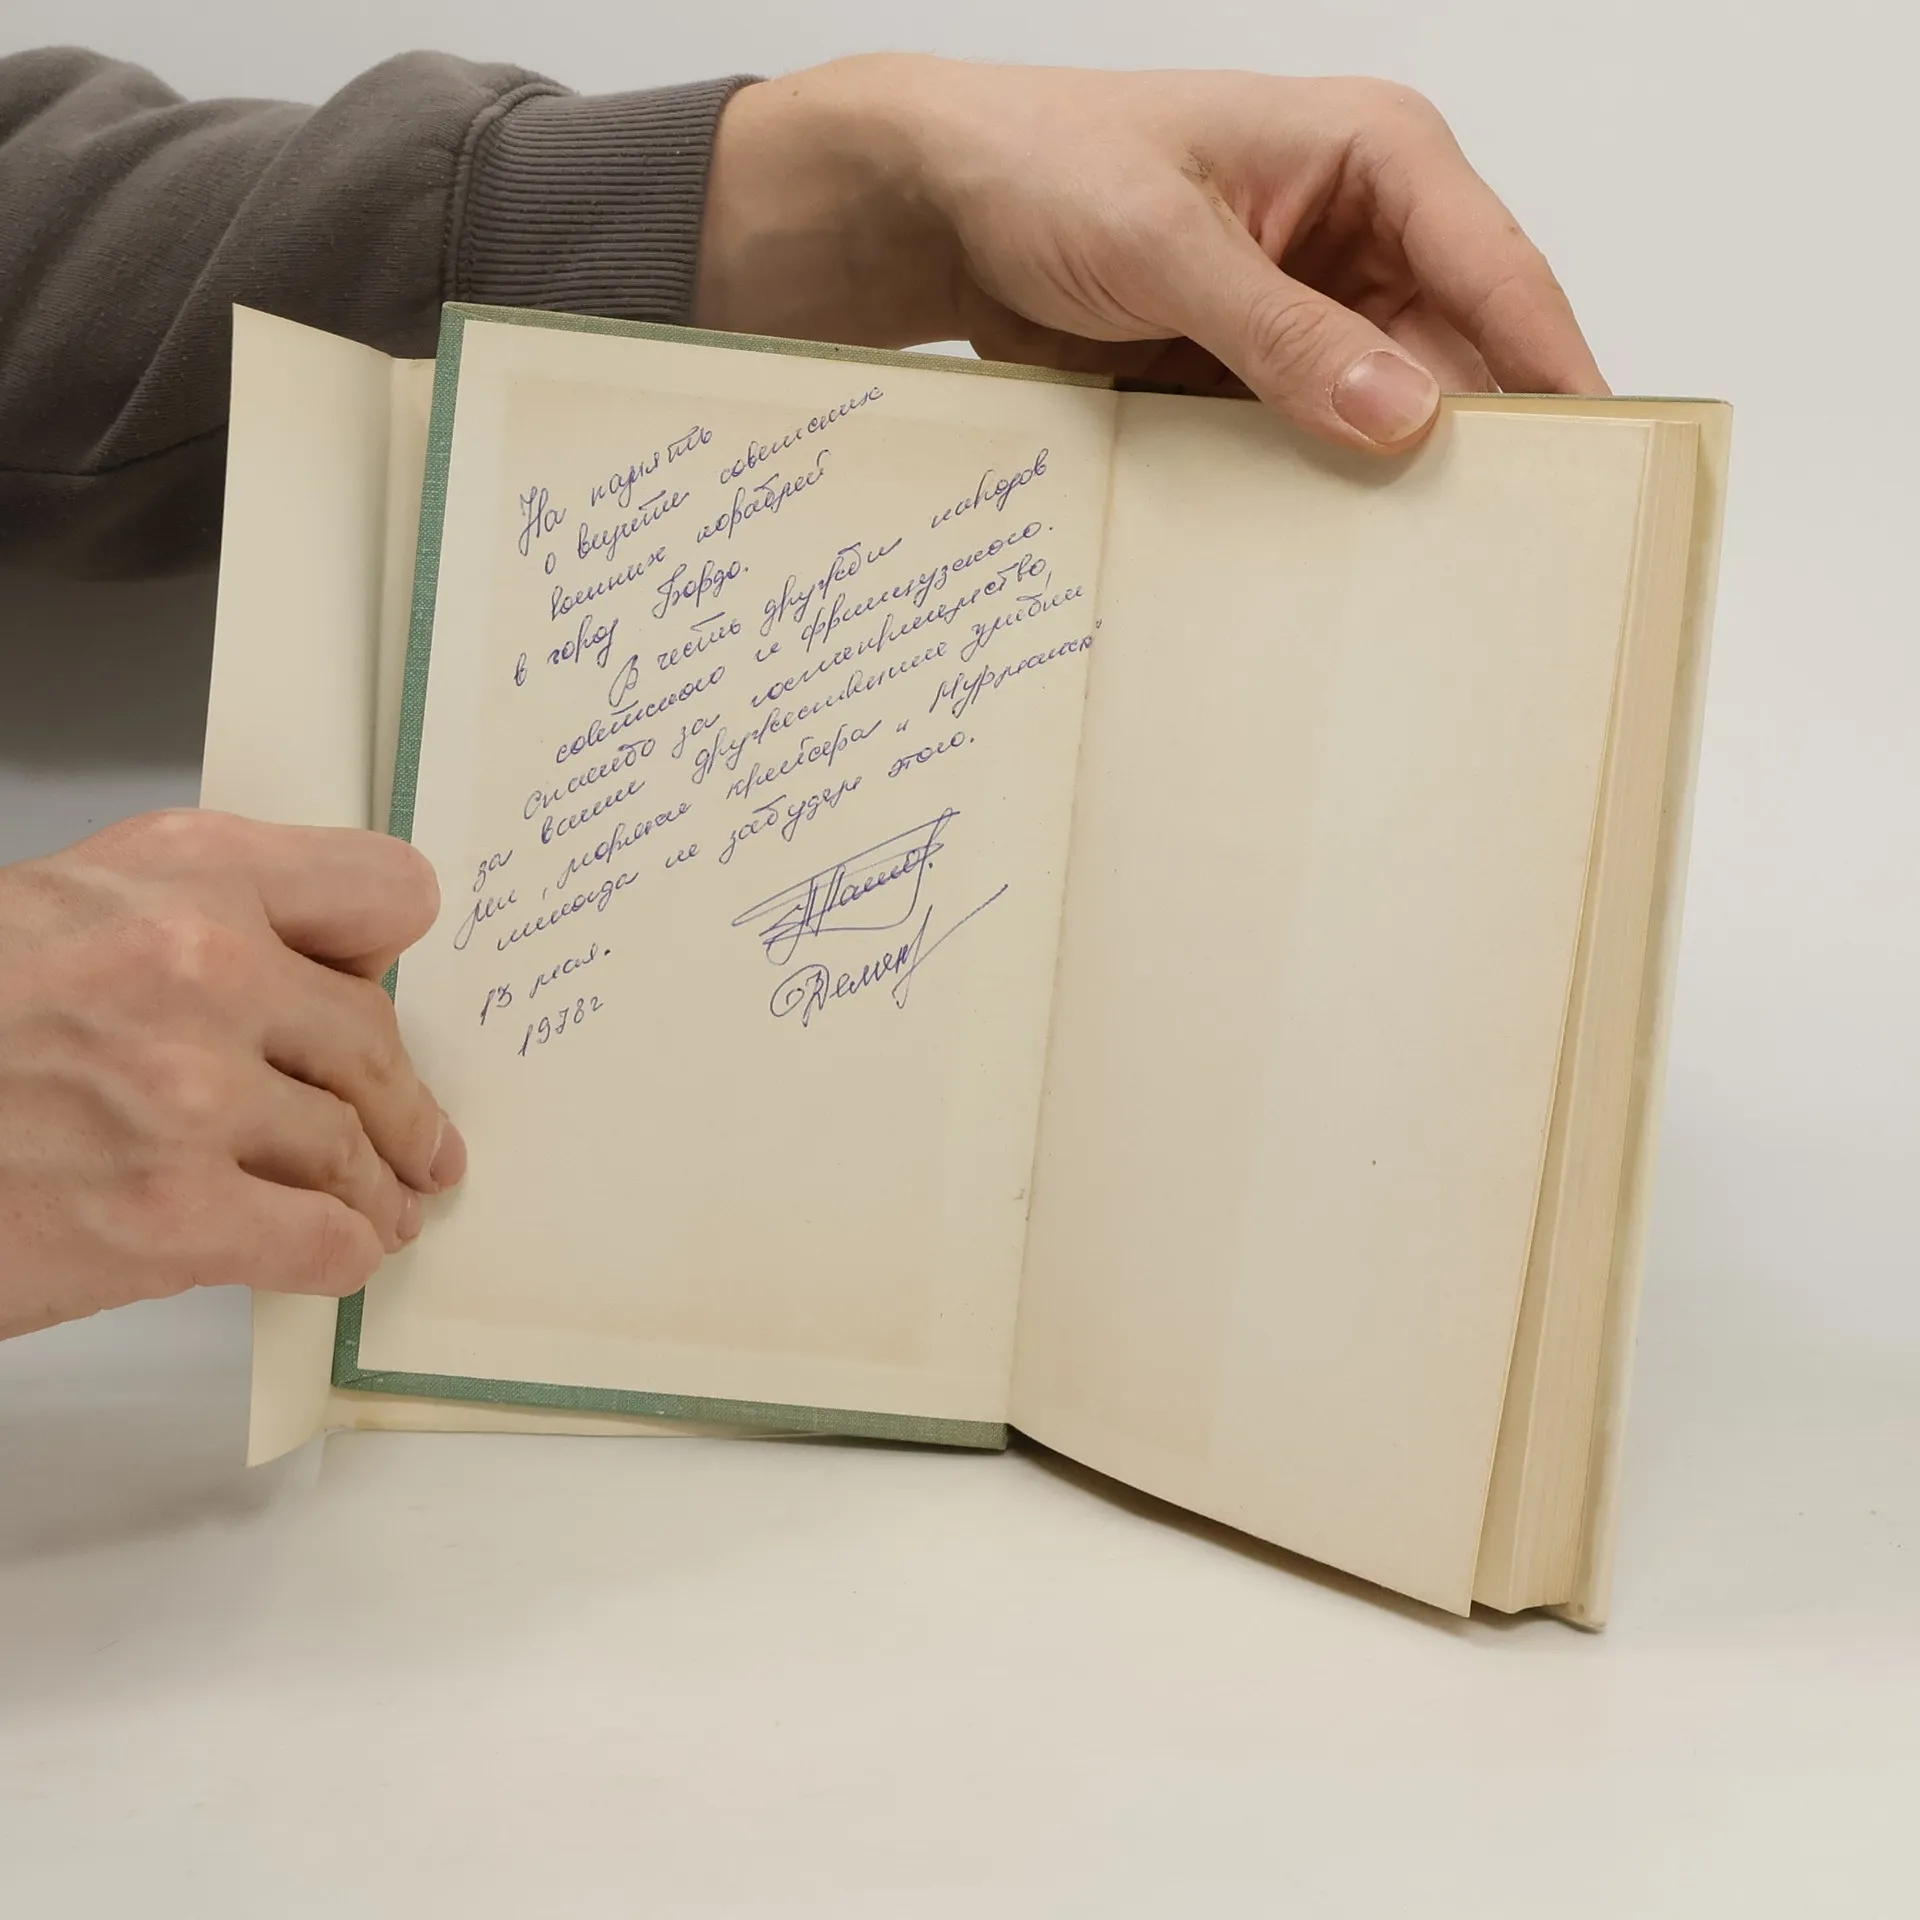 На память
о визите советских
военных кораблей
в город Бордо.
В честь дружбы народов
советского и французского.
Спасибо за гостеприимство,
за ваши дружественные улыбки
мы, моряки крейсера „Мурманск“
никогда не забудем этого.
13 мая.
1978г